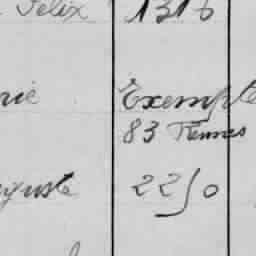 Felix 1316
rie Exempte
83 Rennes
guste 2250